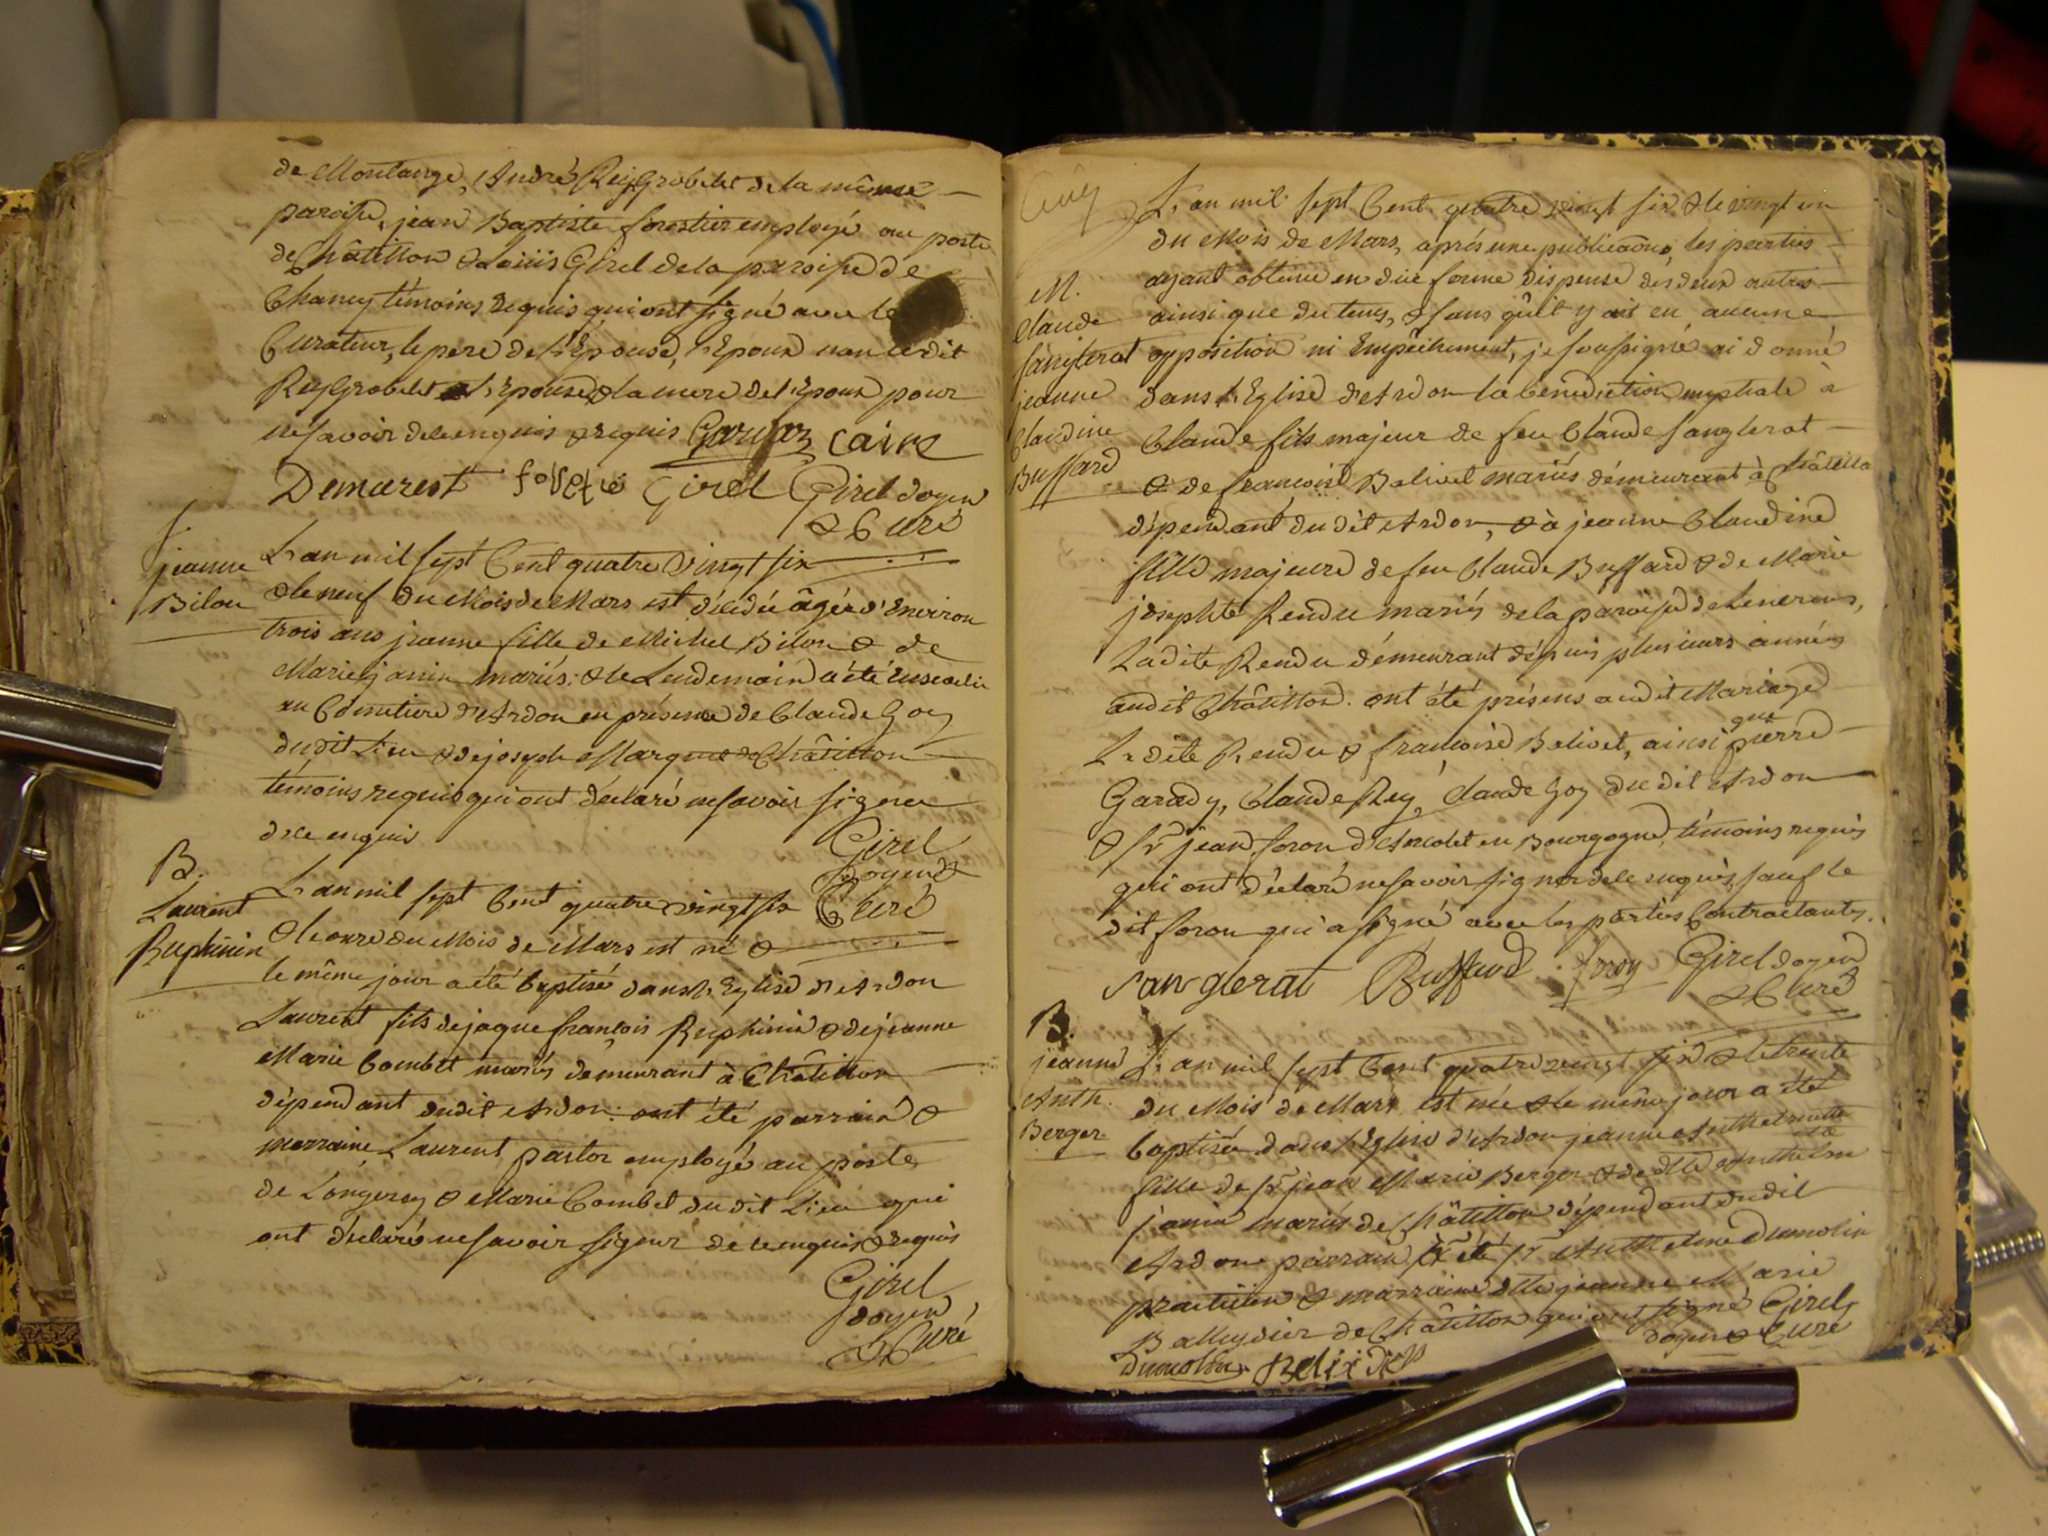 de Montange, André Rey Grobelet de la même
paroisse, jean Baptiste forestier employé au poste
de Châtillon & Loüis Girel de la paroisse de
Chancy témoins requis qui ont signé avec le
Curateur, le pere de l'Epouse, l'Epoux non ledit
Rey Grobelet & l'Epouse & la mere de l'Epoux pour
ne savoir de ce enquis & requis
Demarest Girel Girel doyen
& Curé
jeanne
Bilon
L'an mil sept Cent quatre vingt six
& le neuf du Mois de Mars est décédée âgée d'Environ
trois ans jeanne fille de Michel Bilon & de
Marie janin mariés: & le Lendemain a été Ensevelie
au Cimetiere d'Ardon en présence de Claude Goy
dudit Lieu & de joseph Marquis de Châtillon
témoins requis qui ont déclaré ne savoir signer
de ce enquis
Girel
doyen &
Curé
B.
Laurent
Ruphinin
L'an mil sept Cent quatre vingt six
& le onze du Mois de Mars est né &
le même jour a été baptisé dans l'Eglise d'Ardon
Laurent fils de jaque françois Ruphinin & de jeanne
Marie Combet mariés demeurant à Châtillon
dépendant dudit Ardon: ont été parrain &
marraine Laurent pastor employé au poste
de Longeray & Marie Combet du dit Lieu qui
ont déclaré ne savoir signer de ce enquis & requis
Girel
doyen
& Curé
M.
Claude
Sanglerat
jeanne
Claudine
Buffard
L'an mil sept Cent quatre vingt six & le vingt un
du Mois de Mars, après une publication, les parties
ayant obtenu en düe forme dispense des deux autres
ainsi que du tems, & sans qu'il y ait eu aucune
opposition ni Empêchement, je soussigné ai donné
dans l'Eglise d'Ardon la bénédiction nuptiale à
Claude fils majeur de feu Claude Sanglerat
& de françoise Balivet mariés demeurant à Châtillon
dépendant dudit Ardon, & à jeanne Claudine
fille majeure de feu Claude Buffard & de Marie
josephte Rendu mariés de la paroisse de
Ladite Rendu demeurant depuis plusieurs années
audit Châtillon. ont été présens audit Mariage
La dite Rendu & françoise Balivet, ainsi que pierre
Garady, Claude Rey, Claude Goy du dit Ardon
& Sr jean foron en Bourgogne, témoins requis
qui ont déclaré ne savoir signer de ce enquis, sauf le
dit foron qui a signé avec les parties Contractantes.
Sanglerat Buffard Girel doyen
& Curé
B.
jeanne
Anth.
Berger
L'an mil sept Cent quatre vingt six & le trente
du Mois de Mars est née & le même jour a été
baptisée dans l'Eglise d'Ardon jeanne Anthelmette
fille de Sr jean Marie Berger & de dlle Anthelme
janin mariés de Châtillon dépendant dudit
Ardon parrain a été Sr Anthelme Dumolin
praticien & marraine dlle jeanne Marie
de Châtillon qui ont signé Girel
doyen & Curé
Dumolin